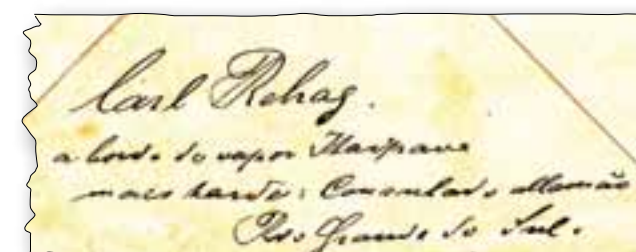 Carl Rehag.
a bordo do vapor Itaipava
mais tarde: Consulado allemão
Rio Grande do Sul.